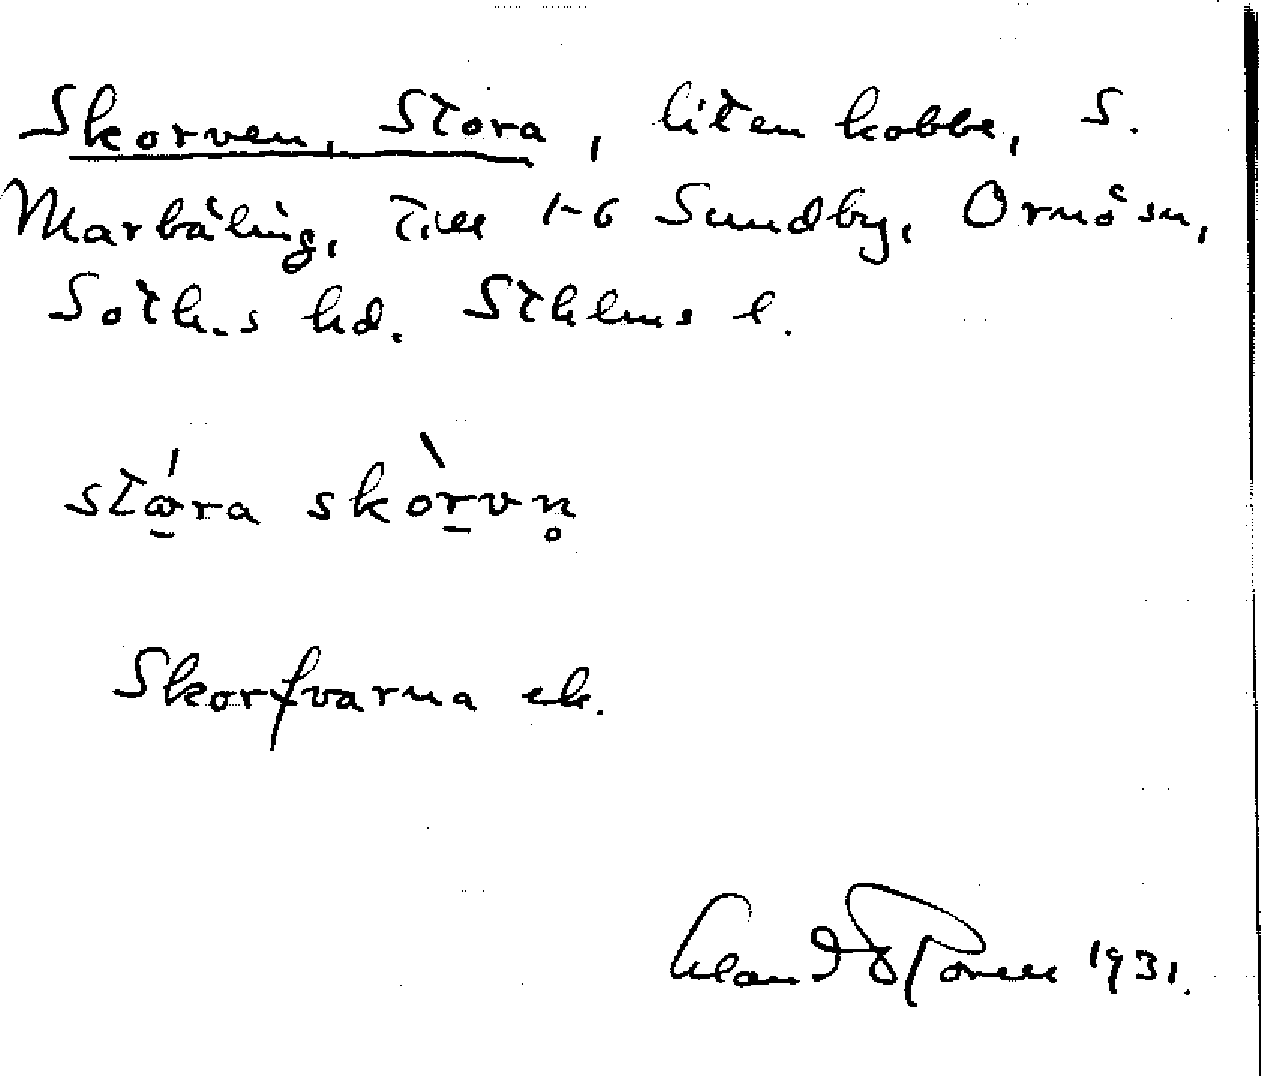 Skorven, Stora, liten kobbe, S.
Marbäling, till 1-6 Sundby, Ornö sn,
Sothms hd. Sthlms l.
stǿra skòrvn̥
Skorfvarna ek.
1931.